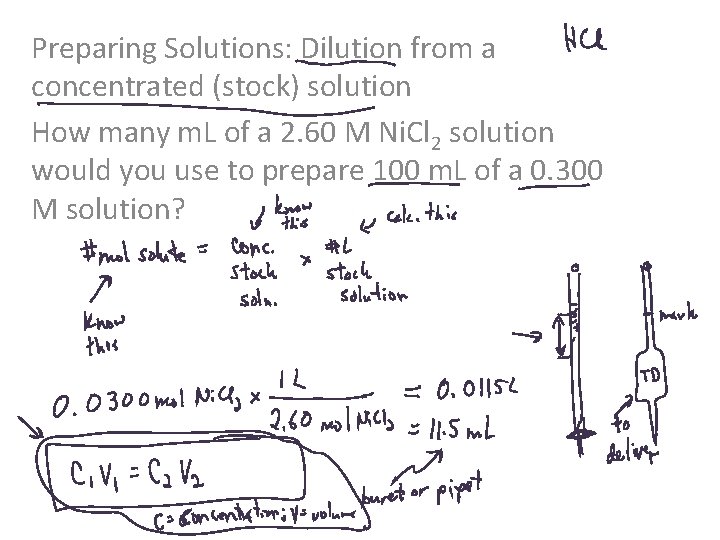 Preparing Solutions: Dilution from a HCl
concentrated (stock) solution
How many mL of a 2.60 M NiCl2 solution
would you use to prepare 100 mL of a 0.300
M solution?
know this
calc. this
#mol solute = conc. stock soln. × #L stock solution
know this
mark
TD
to deliver
0.0300 mol NiCl2 × 1 L / 2.60 mol NiCl2 = 0.0115 L
= 11.5 mL
C1V1 = C2V2
buret or pipet
C = concentration; V = volume